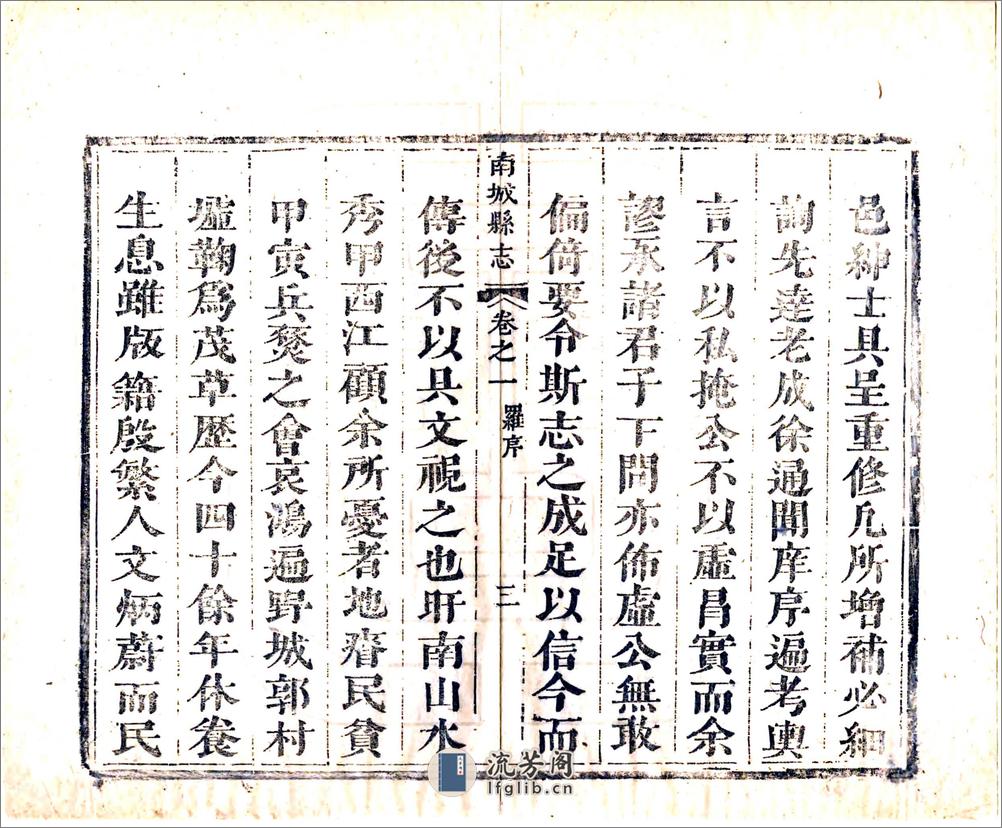 邑紳士具呈重修凡所增補必細
詢先達老成徐通聞庠序遍考輿
言不以私掩公不以虛昌實而余
謬承諸君子下問亦佈虛公無敢
偏倚要令斯志之成足以信今而
南城縣志 卷之一 羅序 三
傳後不以具文視之也盱南山水
秀甲西江顧余所憂者地瘠民貧
甲寅兵燹之會哀鴻遍野城郭村
墟鞠爲茂草歷今四十餘年休養
生息雖版籍殷繁人文炳蔚而民
流芳阁
lfglib.cn